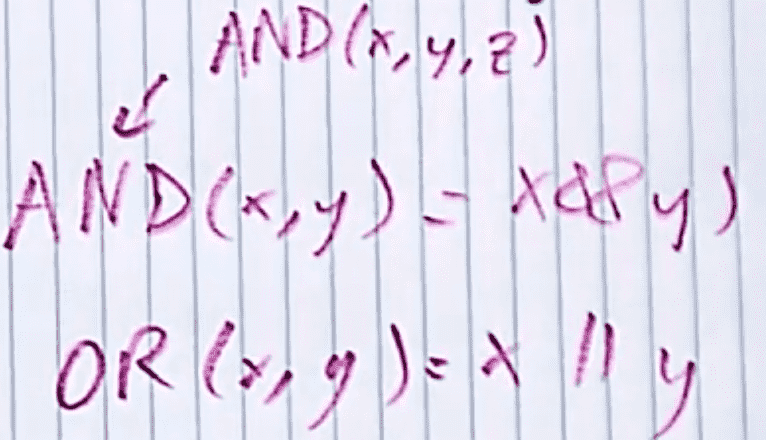 AND(x, y, z)
↙
AND(x, y) = x && y)
OR(x, y) = x || y